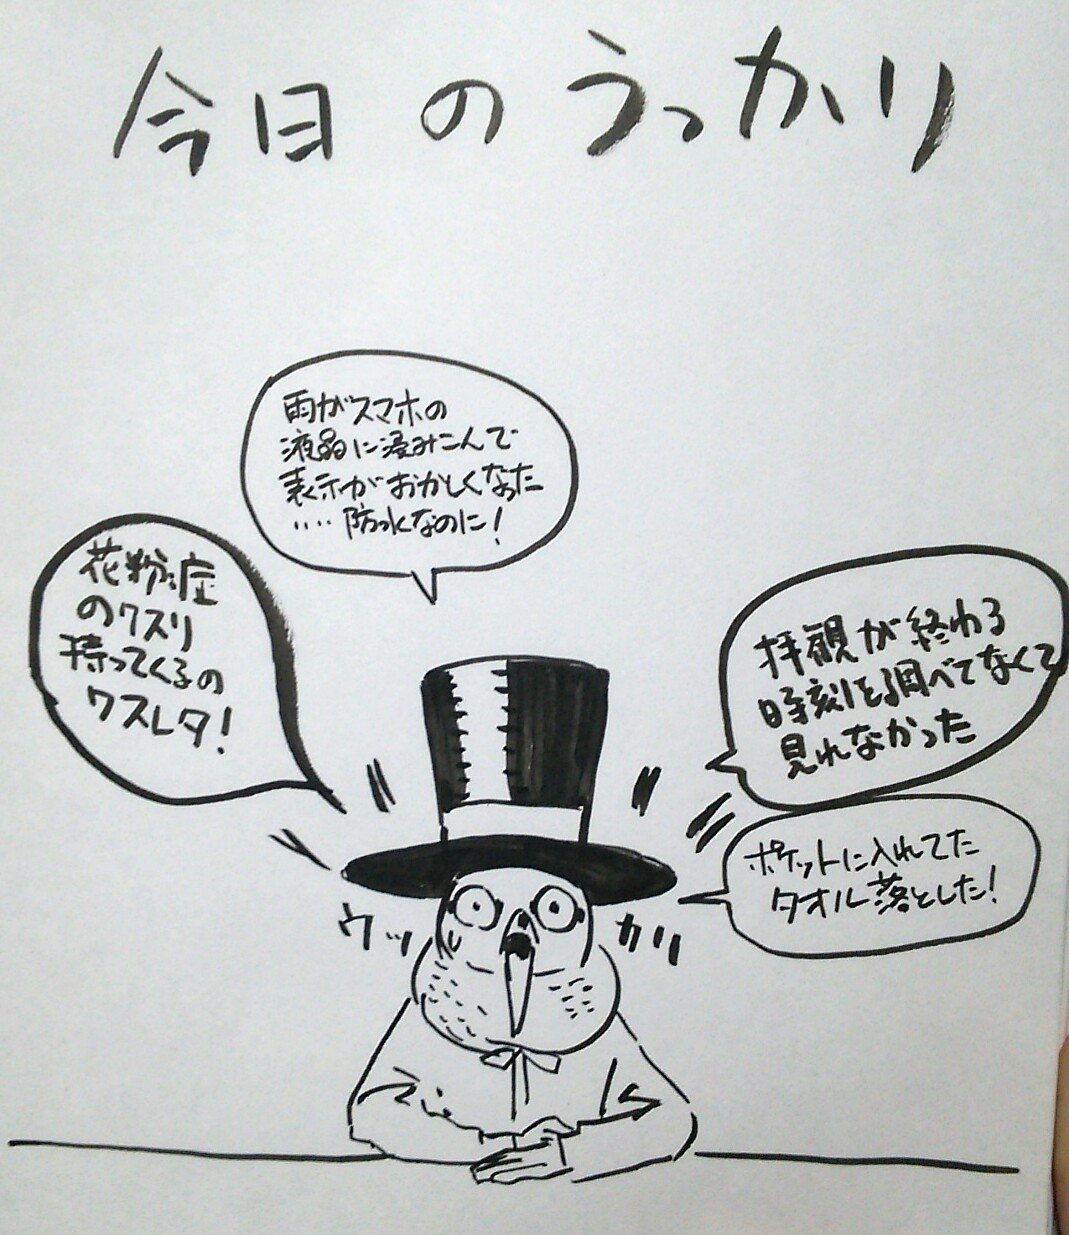 今日のうっかり
雨がスマホの
液晶に浸みこんで
表示がおかしくなった
‥‥防水なのに！
花粉症
のクスリ
持ってくるの
ワスレタ！
拝観が終わる
時刻を調べてなくて
見れなかった
ポケットに入れてた
タオル落とした！
ウッカリ